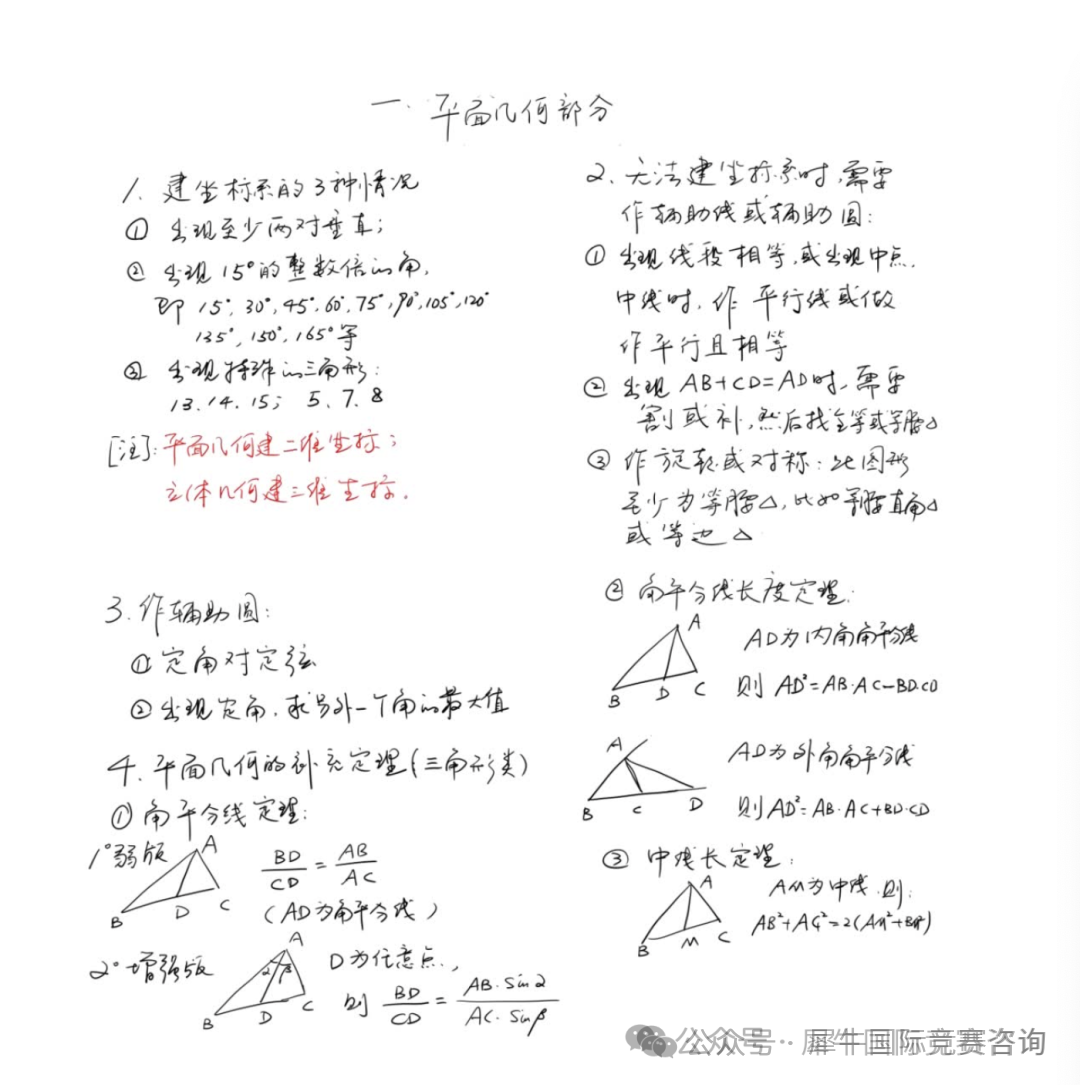 一. 平面几何部分
1. 建坐标系的3种情况
① 出现至少两对垂直;
② 出现15°的整数倍的角,
即 15°, 30°, 45°, 60°, 75°, 90°, 105°, 120°
135°, 150°, 165°等
③ 出现特殊的三角形:
13. 14. 15; 5. 7. 8
[注]: 平面几何建二维坐标;
立体几何建三维坐标.
2. 无法建坐标系时, 需要
作辅助线或辅助圆:
① 出现线段相等, 或出现中点.
中线时, 作平行线或做
作平行且相等
② 出现 AB+CD=AD时, 需要
割或补, 然后找全等或等腰△
③ 作旋转或对称: 此图形
至少为等腰△, 比如等腰直角△
或等边△
3. 作辅助圆:
① 定角对定弦
② 出现定角, 求另外一个角的最大值
4. 平面几何的补充定理(三角形类)
① 角平分线定理:
1° 弱版
A
B D C
BD/CD = AB/AC
(AD为角平分线)
2° 增强版
A
α β
B D C
D为任意点,
则 BD/CD = AB·Sinα/AC·Sinβ
② 角平分线长度定理:
A
B D C
AD为内角角平分线
则 AD²=AB·AC-BD·CD
A
B C D
AD为外角角平分线
则AD²=AB·AC+BD·CD
③ 中线长定理:
A
B M C
AM为中线, 则:
AB²+AC²=2(AM²+BM²)
公众号·犀牛国际竞赛咨询